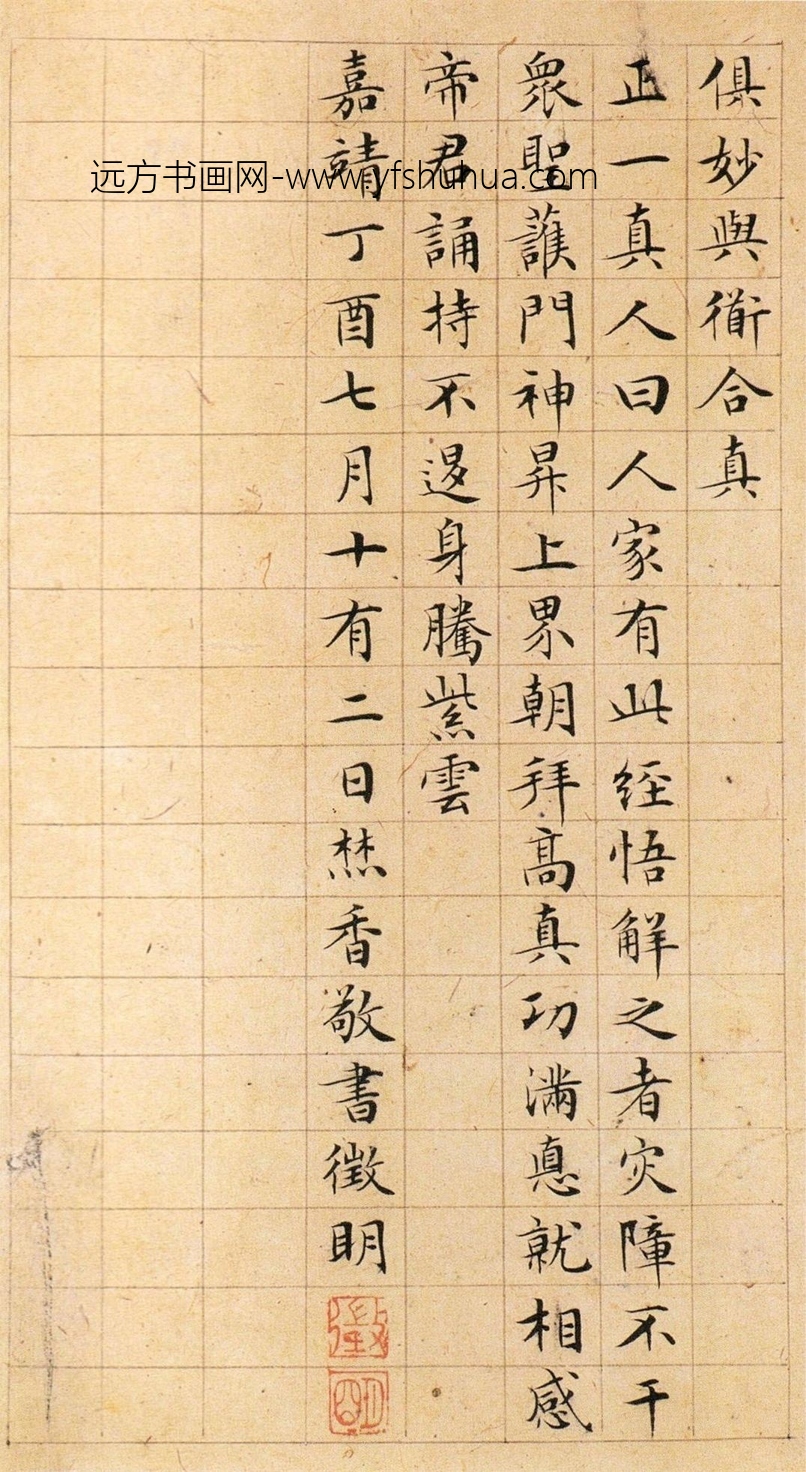 俱妙與衜合真
正一真人曰人家有此經悟解之者灾障不干
衆聖護門神昇上界朝拜高真功滿悳就相感
帝君誦持不退身騰紫雲
嘉靖丁酉七月十有二日焚香敬書徵明
徵明
远方书画网-www.yfshuhua.com